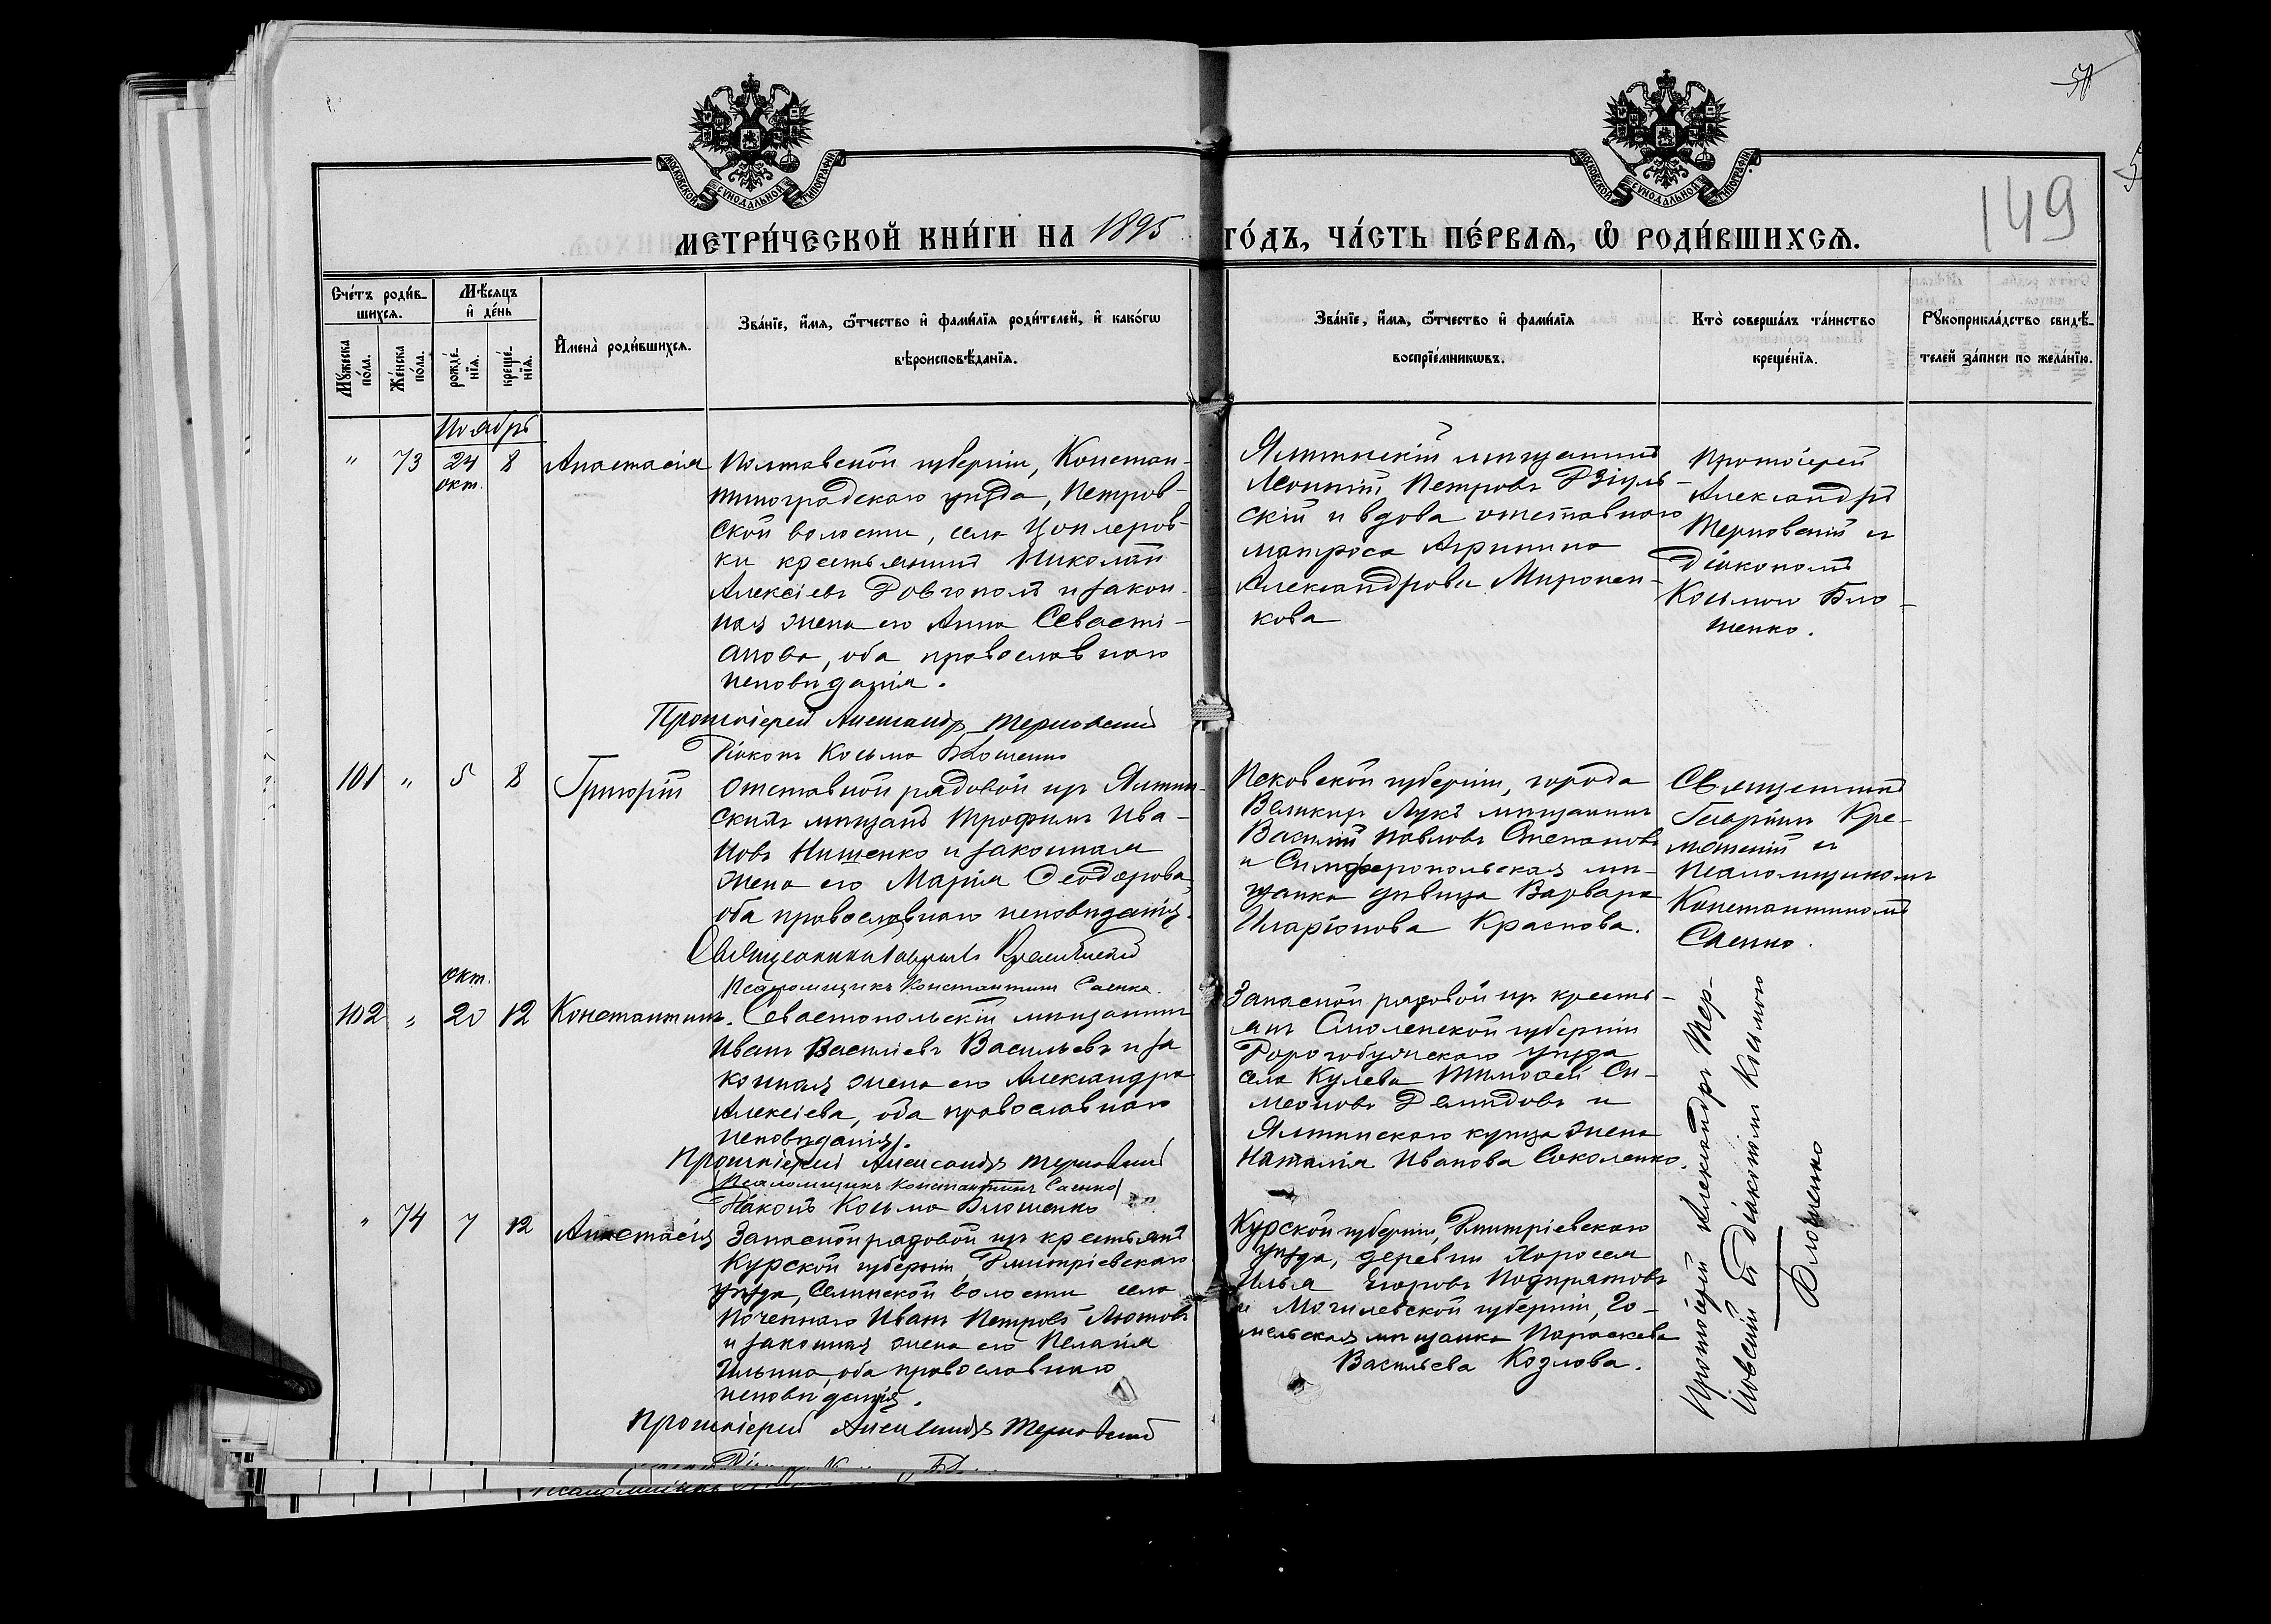 МОСКОВСКОЙ СУНОДАЛЬНОЙ ТИПОГРАФИИ
МОСКОВСКОЙ СУНОДАЛЬНОЙ ТИПОГРАФИИ
149
МЕТРИ́ЧЕСКОЙ КНИ́ГИ НА 1895 ГО́ДЪ, ЧА́СТЬ ПЕ́РВАѦ, Ѽ РОДИ́ВШИХСѦ.
Сче́тъ роди́в-
шихсѧ.
Мѣ́сѧцъ
и҆ де́нь
И҆мена̀ роди́вшихсѧ.
Зва́нїе, и҆́мѧ, ѻ҆́тчество и҆ фами́лїѧ роди́телей, и҆ како́гѡ
вѣроисповѣ́данїѧ.
Мꙋ́жеска
по́ла.
Же́нска
по́ла.
рожде́-
нїѧ.
креще́-
нїѧ.
Зва́нїе, и҆́мѧ, ѻ҆́тчество и҆ фами́лїѧ
воспрїе́мникѡвъ.
Кто̀ соверша́лъ та́инство
креще́нїѧ.
Рꙋкоприкла́дство свидѣ́-
телей за́писи по жела́нїю.
Ноябрь
" 73 24 8 Анастасія
окт.
Полтавской губерніи, Констан-
тиноградскаго уѣзда, Петров-
ской волости, села
ки крестьянинъ Николай
Алексіевъ Довгополъ и закон-
ная жена его Анна Севасті-
анова, оба православнаго
исповѣданія.
Протоіерей Александръ Терновскій
Діаконъ Косьма Блошенко
Ялтинскій мѣщанинъ
Леонтій Петровъ
скій и вдова отставнаго
матроса Агриппина
Александрова Миронен-
кова
Протоіерей
Александръ
Терновскій и
Діакономъ
Косьмою Бло-
шенко.
101 " 5 8 Григорій
Отставной рядовой изъ Ялтин-
скихъ мѣщанъ Трофимъ Ива-
новъ Нищенко и законная
жена его Марія Ѳеодорова,
оба православнаго исповѣданія.
Священникъ Гавріилъ
Псаломщикъ Константинъ Саенко.
Псковской губерніи, города
Великихъ Лукъ мѣщанинъ
Василій Павловъ Степановъ
и Симферопольская мѣ-
щанка дѣвица Варвара
Иларіонова Краснова.
Священникъ
Гавріилъ
и
Псаломщикомъ
Константиномъ
Саенко.
окт.
102 " 20 12 Константинъ.
Севастопольскій мѣщанинъ
Иванъ Василіевъ Васильевъ и за
конная жена его Александра
Алексіева, оба православнаго
исповѣданія.
Протоіерей Александръ Терновскій
Псаломщикъ Константинъ Саенко
Діаконъ Косьма Блошенко
Запасной рядовой изъ кресть-
янъ Смоленской губерніи
Дорогобужскаго уѣзда
села Кулева Тимоѳей Си-
меоновъ Демидовъ и
Ялтинскаго купца жена
Наталія Иванова Соколенко.
Протоіерей Александръ Тер-
новскій съ Діакономъ Косьмою
Блошенко
" 74 7 12 Анастасія
Запасной рядовой изъ крестьянъ
Курской губерніи, Дмитріевскаго
уѣзда, Селинской волости села
Поченнаго Иванъ Петровъ Лютовъ
и законная жена его Пелагія
Ильина, оба православнаго
исповѣданія.
Протоіерей Александръ Терновскій
Курской губерніи, Дмитріевскаго
уѣзда, деревни
Илья Егоровъ
и Могилевской губерніи, Го-
мельская мѣщанка Параскева
Васильева Козлова.